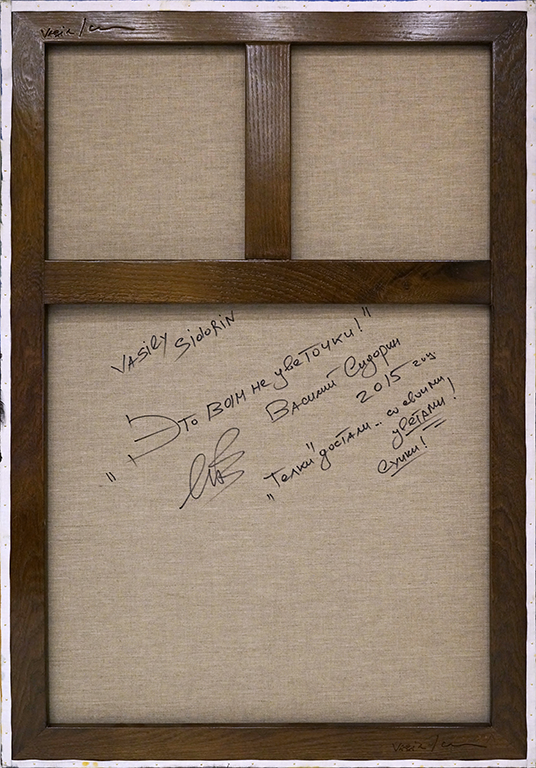 Vasia
VASilY SidoRiN
"Это Вам не цветочки!"
Василий Сидорин
2015 год
"Телки" достали... со своими
цветами!
Сучки!
Vasia